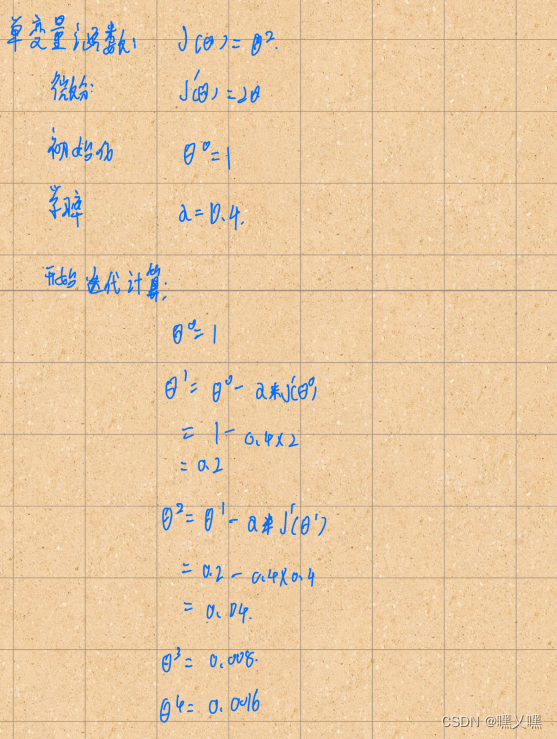 单变量函数: J(θ) = θ².
微分: J'(θ) = 2θ
初始值 θ⁰ = 1
学率 α = 0.4.
开始迭代计算:
θ⁰ = 1
θ¹ = θ⁰ - α*J'(θ⁰)
= 1 - 0.4×2
= 0.2
θ² = θ¹ - α*J'(θ¹)
= 0.2 - 0.4×0.4
= 0.04.
θ³ = 0.008.
θ⁴ = 0.0016
CSDN @嘿乂嘿